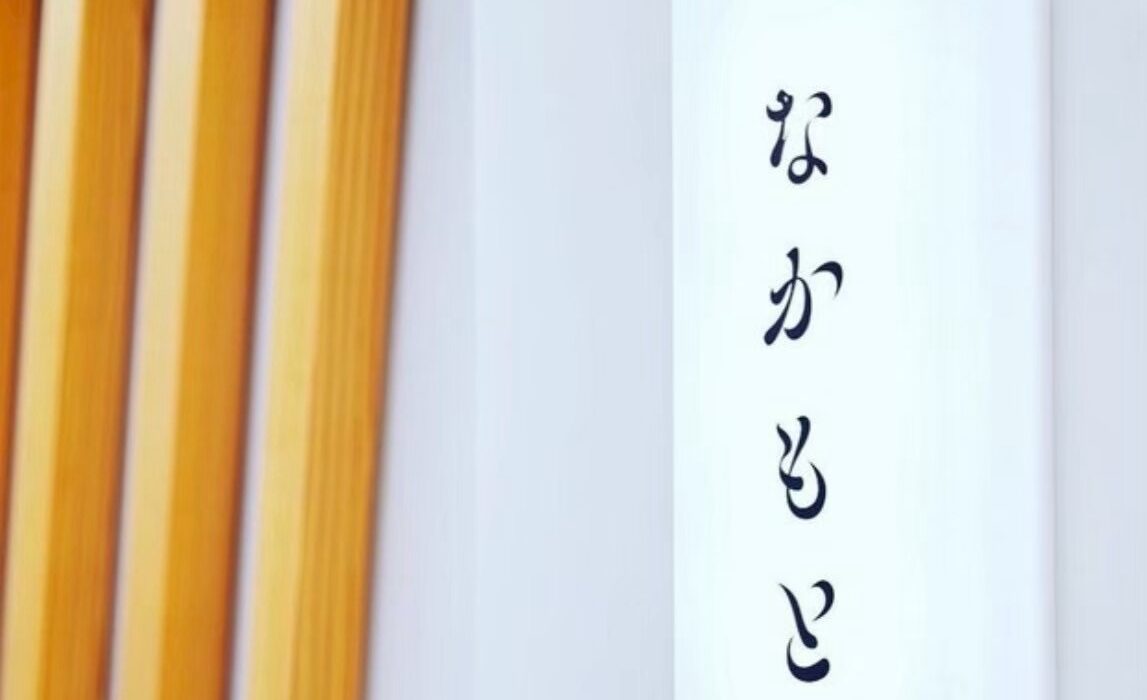 なかもと